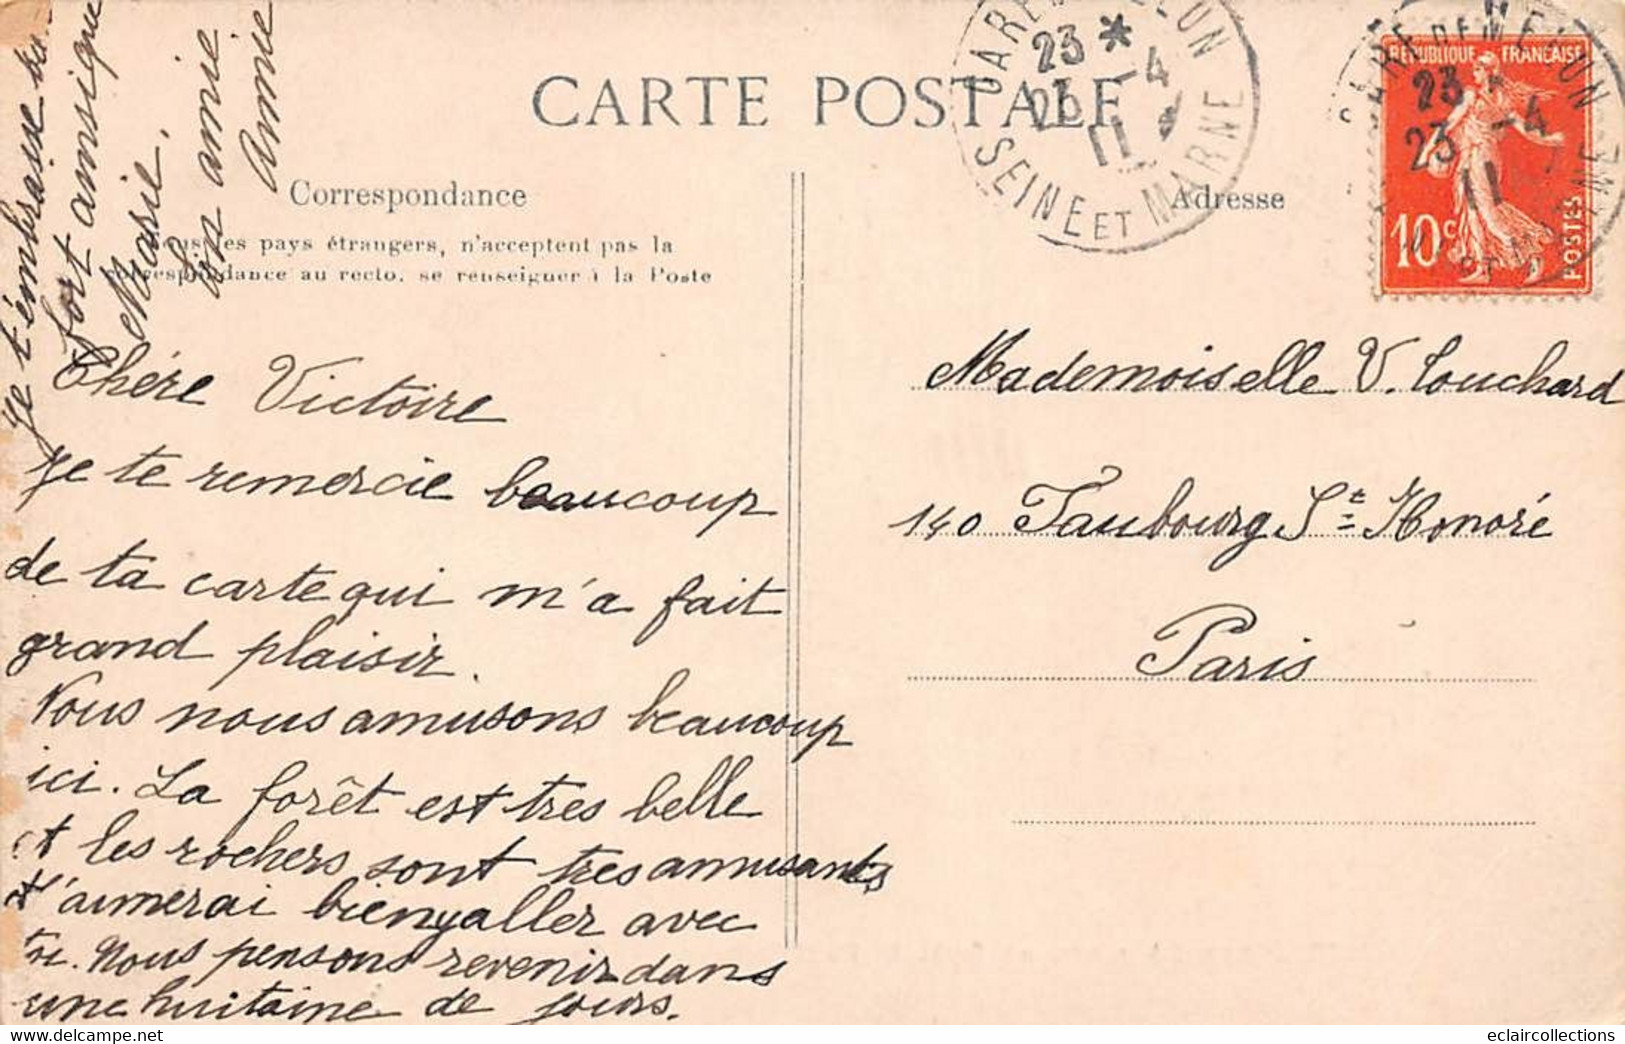 CARTE POSTALE
Correspondance
Adresse
les pays étrangers, n'acceptent pas la
correspondance au recto, se renseigner à la Poste
GARE DE MELUN
23 *
23 -4
11
SEINE ET MARNE
GARE DE MELUN
23 *
23 -4
11
ET MARNE
REPUBLIQUE FRANÇAISE
10c
POSTES
Chère Victoire
je te remercie beaucoup
de ta carte qui m'a fait
grand plaisir.
Nous nous amusons beaucoup
ici. La forêt est tres belle
et les rochers sont tres amusants
J'aimerai bien y aller avec
toi. Nous pensons revenir dans
une huitaine de jours.
Je t'embrasse
fort ainsi que
Marie.
Ton amie
Annie
Mademoiselle V. Couchard
140 Faubourg St Honoré
Paris
eclaircollections